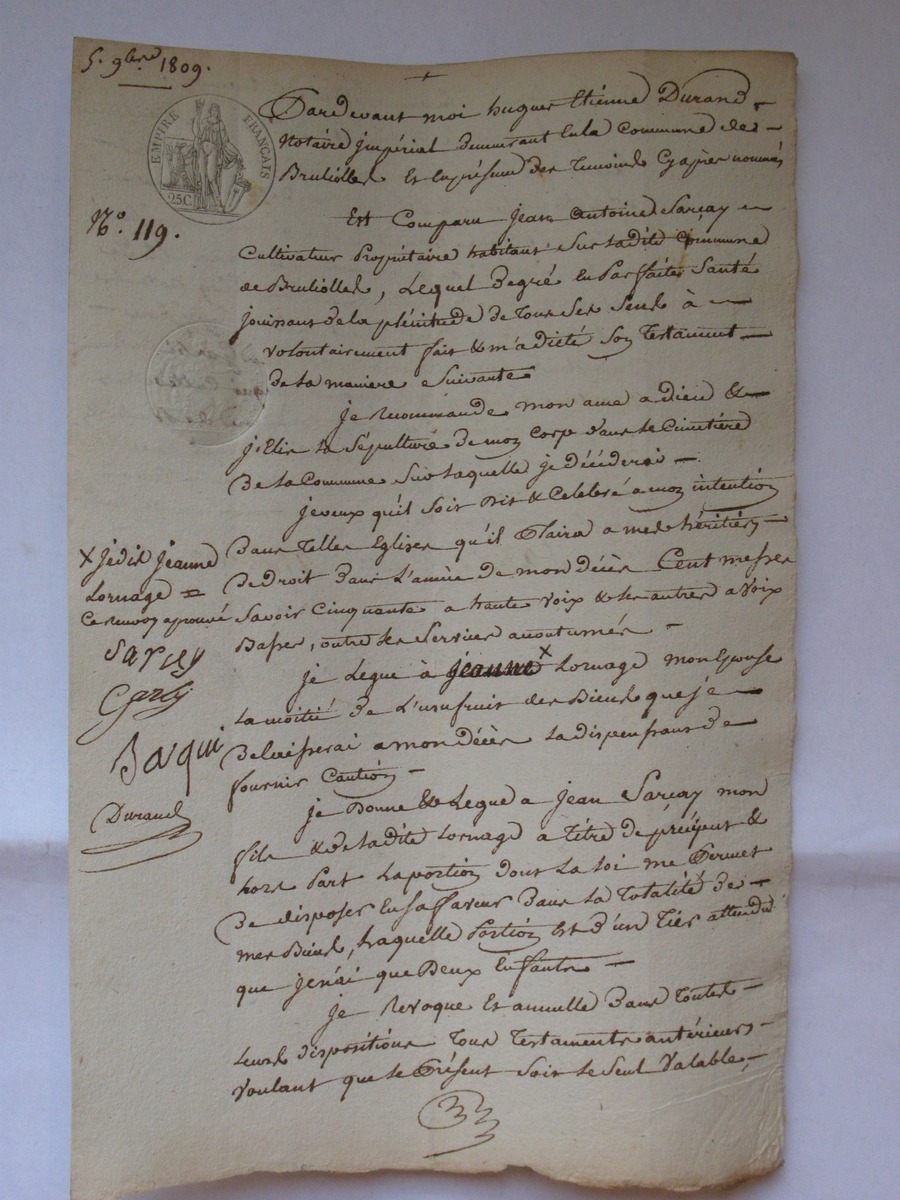 5. 9bre 1809.
EMPIRE FRANÇAIS
25C
N.o 119.
Pardevant moi hugues Etienne Durand
Notaire jmpérial demeurant En la Commune de
Brulliolles Et En présence des Temoins Cy après nommés
Est Comparu jean Antoine Sarçay
Cultivateur Propriétaire habitant Sur Ladite Commune
de Brulliolles, Lequel Degré En Parfaite Santé
jouissant De la plénitude de Tous Ses Sens à
volontairement fait & m'a dicté Son Testament
De La maniere Suivante
je recommande mon ame a dieu &
j'Elis La Sépulture de mon Corp dans Le Cimetière
De La Commune Sur Laquelle je décéderai
je veux qu'il Soit Dit & Celebré a mon intention
Dans Telles Eglises qu'il Plaira a mes héritiers
De droit Dans L'année de mon Décès Cent messes
Savoir Cinquante a haute Voix & les autres a Voix
Basses, outre les Services acoutumés
je Legue à jeanne x Lornage mon Epouse
La moitié de L'usufruit des Biens que je
Delaisserai a mon décès La dispensant de
fournir Caution
je Donne & Legue a jean Sarçay mon
fils & de Ladite Lornage a Titre de préciput &
hors Part La portion dont La Loi me Permet
De disposer En Sa faveur Dans La Totalité De
mes Biens, Laquelle Portion Est d'un Tier attendu
que je n'ai que Deux Enfants
je Revoque Et annulle Dans Toutes
Leurs dispositions Tous Testaments antérieurs
voulant que le Présent Soit Le Seul Valable,
x Je dis jeanne
Lornage =
Ce renvoy aprouvé
Sarsey
Basqui
Durand